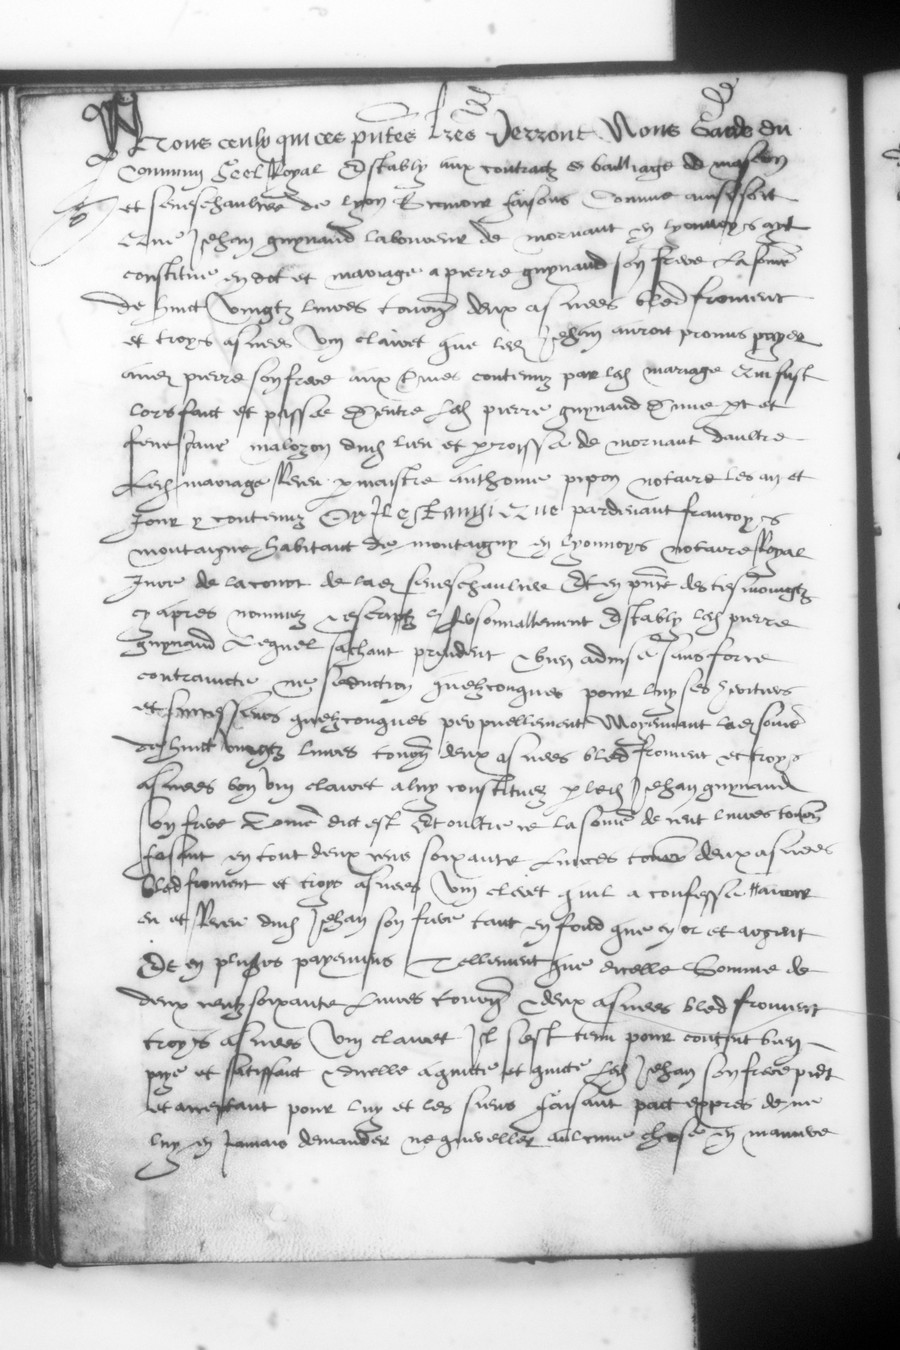 A Tous ceulx qui ces pntes lres Verront Nous Garde du
Commun Seel Royal Estably aux contractz es bailliage de mascon
et seneschaulcee de lyon Scavoir faisons Comme ainsi soit
Que Jehan guynand laboureur de mornant en lyonnoys ayt
constitue en dot et mariage a pierre guynand son frere La some
de huict Vingtz livres tourn deux asnees bled froment
et troys asnees Vin clairet que led Jehan auroit promis payer
aud pierre son frere aux termes contenuz par led mariage Qui fust
lors faict et passe Dentre led pierre guynand Dune pt et
Jane malozon dud lieu et parroisse de mornant daultre
Led mariage Receu p maistre anthoine pipon notaire les an et
Jour y contenuz Or Il est ainsi Que pardevant francoys
montaigne habitant de montaigny en lyonnoys notaire Royal
Jure de la court de lad seneschaulcee Et en pnce des tesmoingtz
cy apres nommez personnallement Estably led pierre
guynand Lequel saichant prudent bien advise sans force
contraincte ne seduction quelzconques pour luy ses heritiers
et successeurs quelzconques perpetuellement Moyennant lad some
de huict vingtz livres tourn deux asnees bled froment et troys
asnees bon vin clairet a luy constituez p led Jehan guynand
son frere Come dict est Et oultre ce la some de cent livres tourn
faisant en tout deux cens soixante Livres tourn deux asnees
bled froment et troys asnees Vin cleret quil a confesse avoir
eu et Receu dud Jehan son frere tant en fond que en or et argent
Et en plusieurs payemens Tellement que dicelle Somme de
deux centz soixante Livres tourn deux asnees bled froment
troys asnees Vin clairet Il sest tenu pour content bien
paye et satisfaict dicelle a quicte et quicte led Jehan son frere pnt
et acceptant pour luy et les siens faisant pact expres de ne
luy en Jamais demander ne quereller aulcune chose En maniere